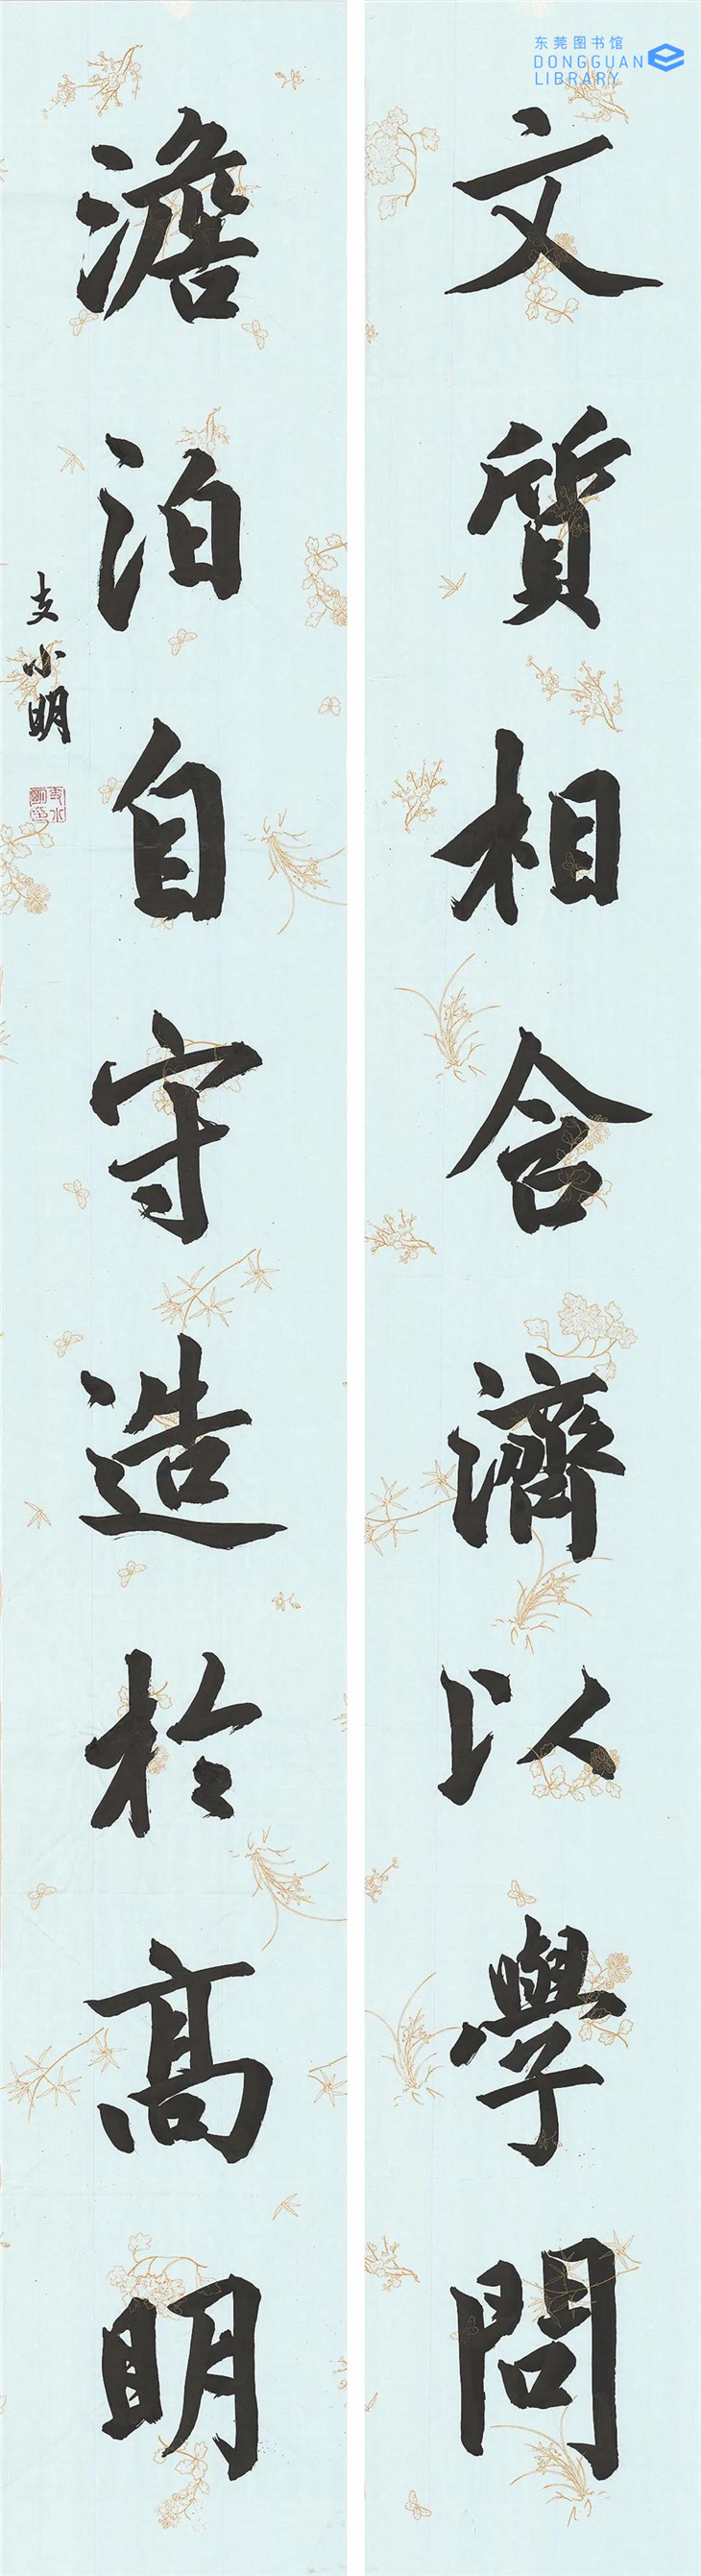 东莞图书馆
DONGGUAN
LIBRARY
文質相含濟以學問
澹泊自守造於高明
支小明